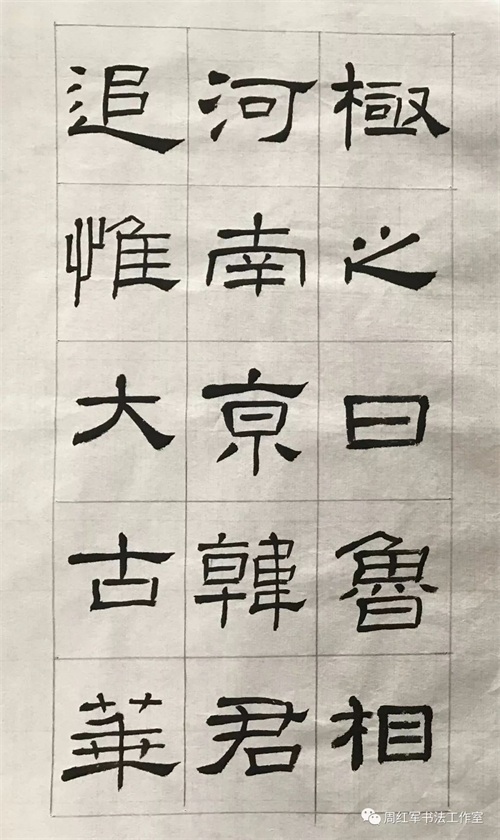 極之曰魯相
河南京韓君
追惟大古華
周红军书法工作室